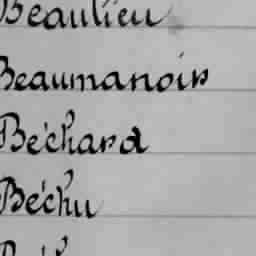 Beaulieu
Beaumanoir
Béchard
Béchu